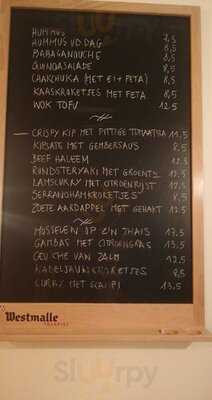 HUMMUS 7,5
HUMMUS VD DAG 8,5
BABAGANOUCHE 8,5
QUINOASALADE 8,5
CHAKCHUKA (MET EI + FETA) 8,5
KAASKROKETJES MET FETA 8,5
WOK TOFU 12,5
CRISPY KIP MET PITTIGE 11,5
KIPSATE MET GEMBERSAUS 8,5
BEEF HALEEM 12,5
RUNDSTERYAKI MET GROENTE 12,5
LAMSCURRY MET CITROENRIJST 12,5
SERRANOHAMKROKETJES 8,5
ZOETE AARDAPPEL MET GEHAKT 12,5
MOSSELEN OP Z'N THAIS 17,5
GAMBAS MET CITROENGRAS 13,5
CEVICHE VAN ZALM 12,5
KABELJAUWKROKETJES 8,5
CURRY MET SCAMPI 13,5
Westmalle
TRAPPIST
Sluurpy